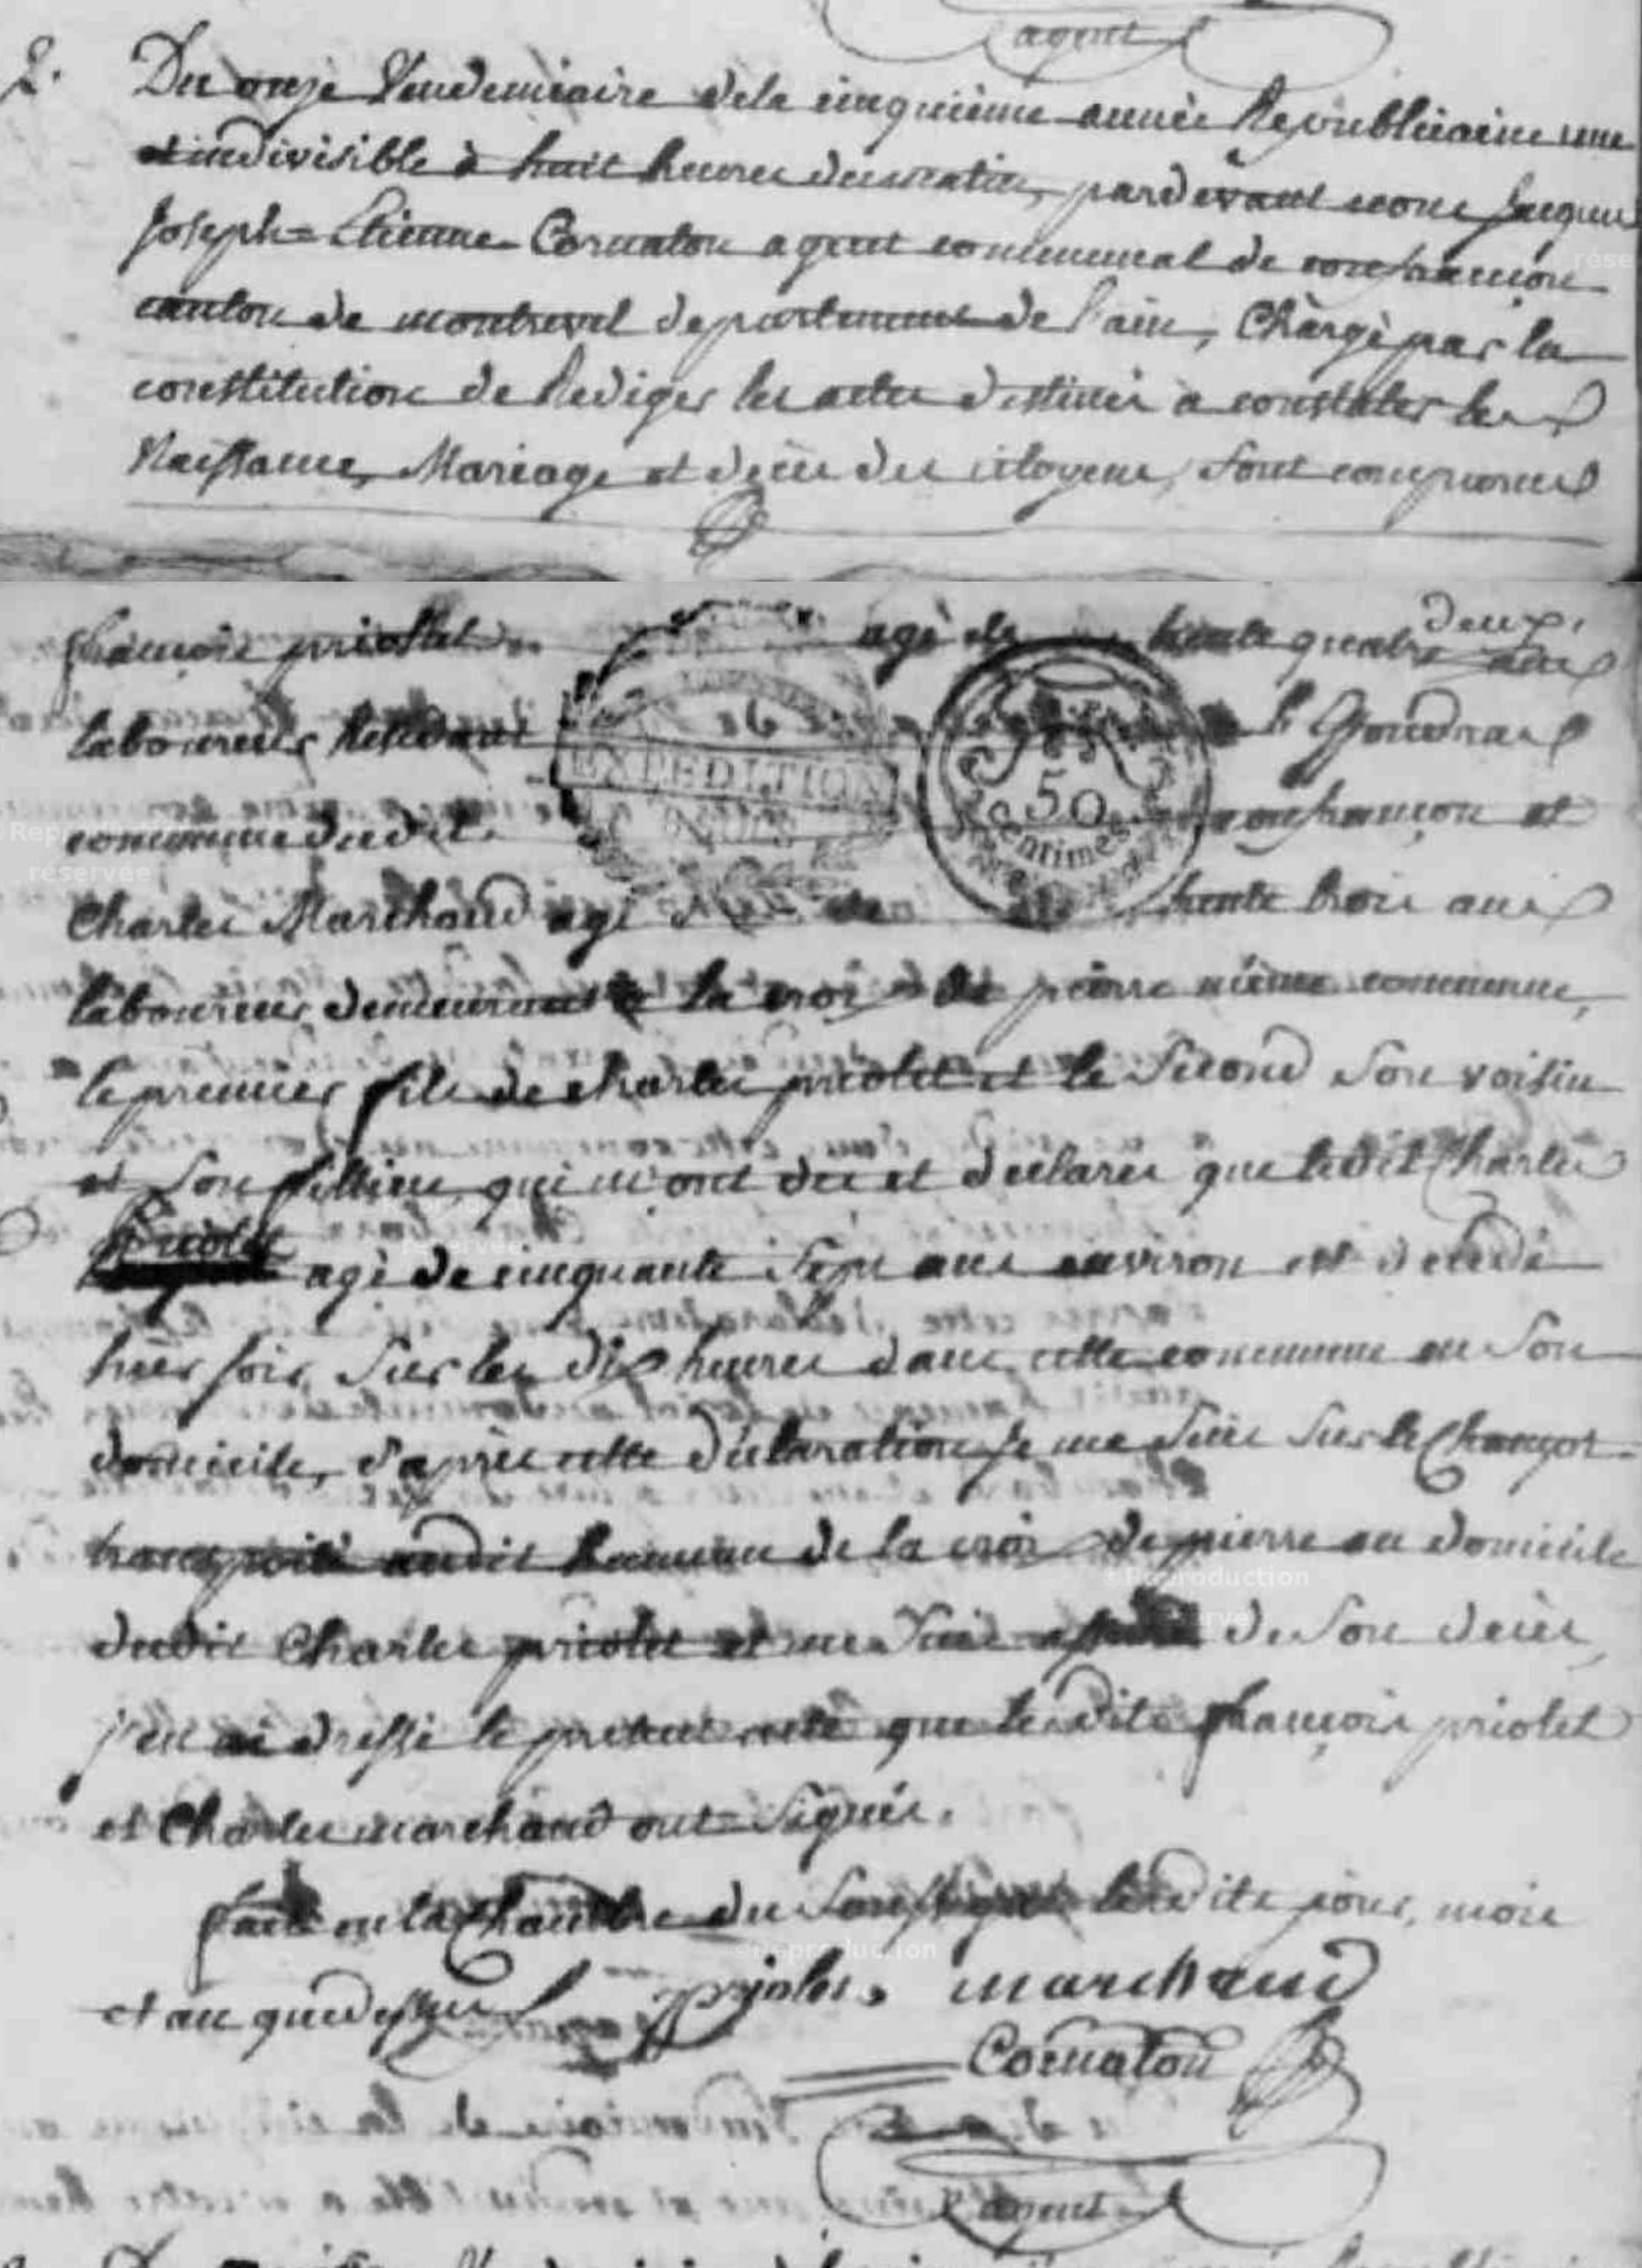 agent
2. Du onze Vendemiaire dela cinquieme année Republicaine une
et indivisible à huit heures du matin, pardevant nous Jacques
Joseph=Etienne Cornaton agent communal de confrançon
canton de montrevel departement de l'ain, Chargé par la
constitution de Rediger les actes destinés a constater les
Naissance, Mariage et décès des citoyens, sont comparus
deux,
françois priolet agé de trente quatre ans
laboureur Residant le Goudnas
commune dudit confrançon et
EXPEDITION
50
centimes
Charles Marchand agé de trente trois ans
laboureur demeurant a la croix de pierre même commune,
le premier fils de charles priolet et le second son voisin
et son fillieu, qui m'ont dit et déclarés que ledit Charles
Priolet agé de cinquante sept ans environ est décédé
hier soir sur les dix heures dans cette commune en son
domicile, d'après cette déclaration je me suis sur le Champ
transporté audit hameau de la croix de pierre au domicile
dudit Charles priolet et me suis assuré de son décès,
j'en ai dressé le présent acte que lesdits françois priolet
et Charles marchand ont signés.
fait en la Chambre du soussigné lesdits jour, mois
et an que dessus
priolet marchand
Cornaton
agent